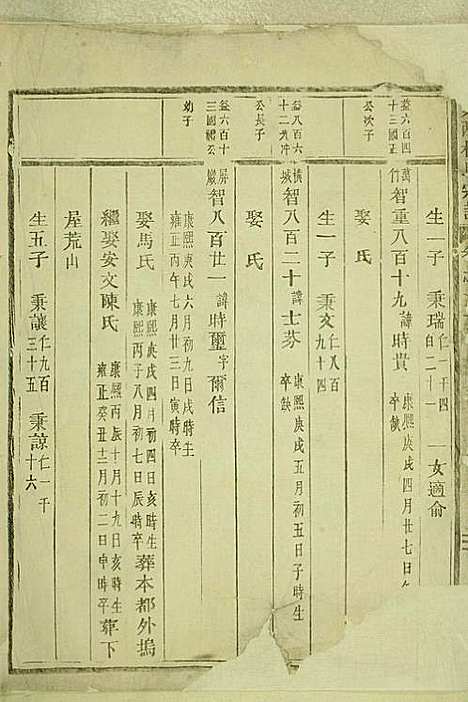 生一子 秉瑞 仁一千四百二十一 一女適俞
益六百四十三國正公次子
萬竹 智重八百十九 諱時貴 康熙庚戌四月廿七日午 卒缺
娶 氏
生一子 秉文 仁八百九十四
益八百六十二 冲公長子
橫城 智八百二十 諱士芬 康熙庚戌五月初五日子時生 卒缺
娶 氏
益六百十三國禮公幼子
屏巖 智八百廿一 諱時璽 字爾信
康熙庚戌六月初九日戌時生
雍正丙午七月廿三日寅時卒
娶馬氏 康熙庚戌四月初四日亥時生 康熙丙子八月初七日辰時卒 葬本都外塢
繼娶安文陳氏 康熙丙辰十月十九日亥時生 雍正癸丑十二月初二日申時卒 葬下
屋荒山
生五子 秉讓 仁九百三十五 秉諒 仁一千十六